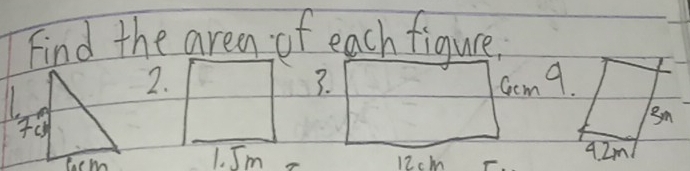 Find the area of each figure.
1. 2. 3. 6cm 4.
7cm 3m
6cm 1.5m 12cm 4.2m